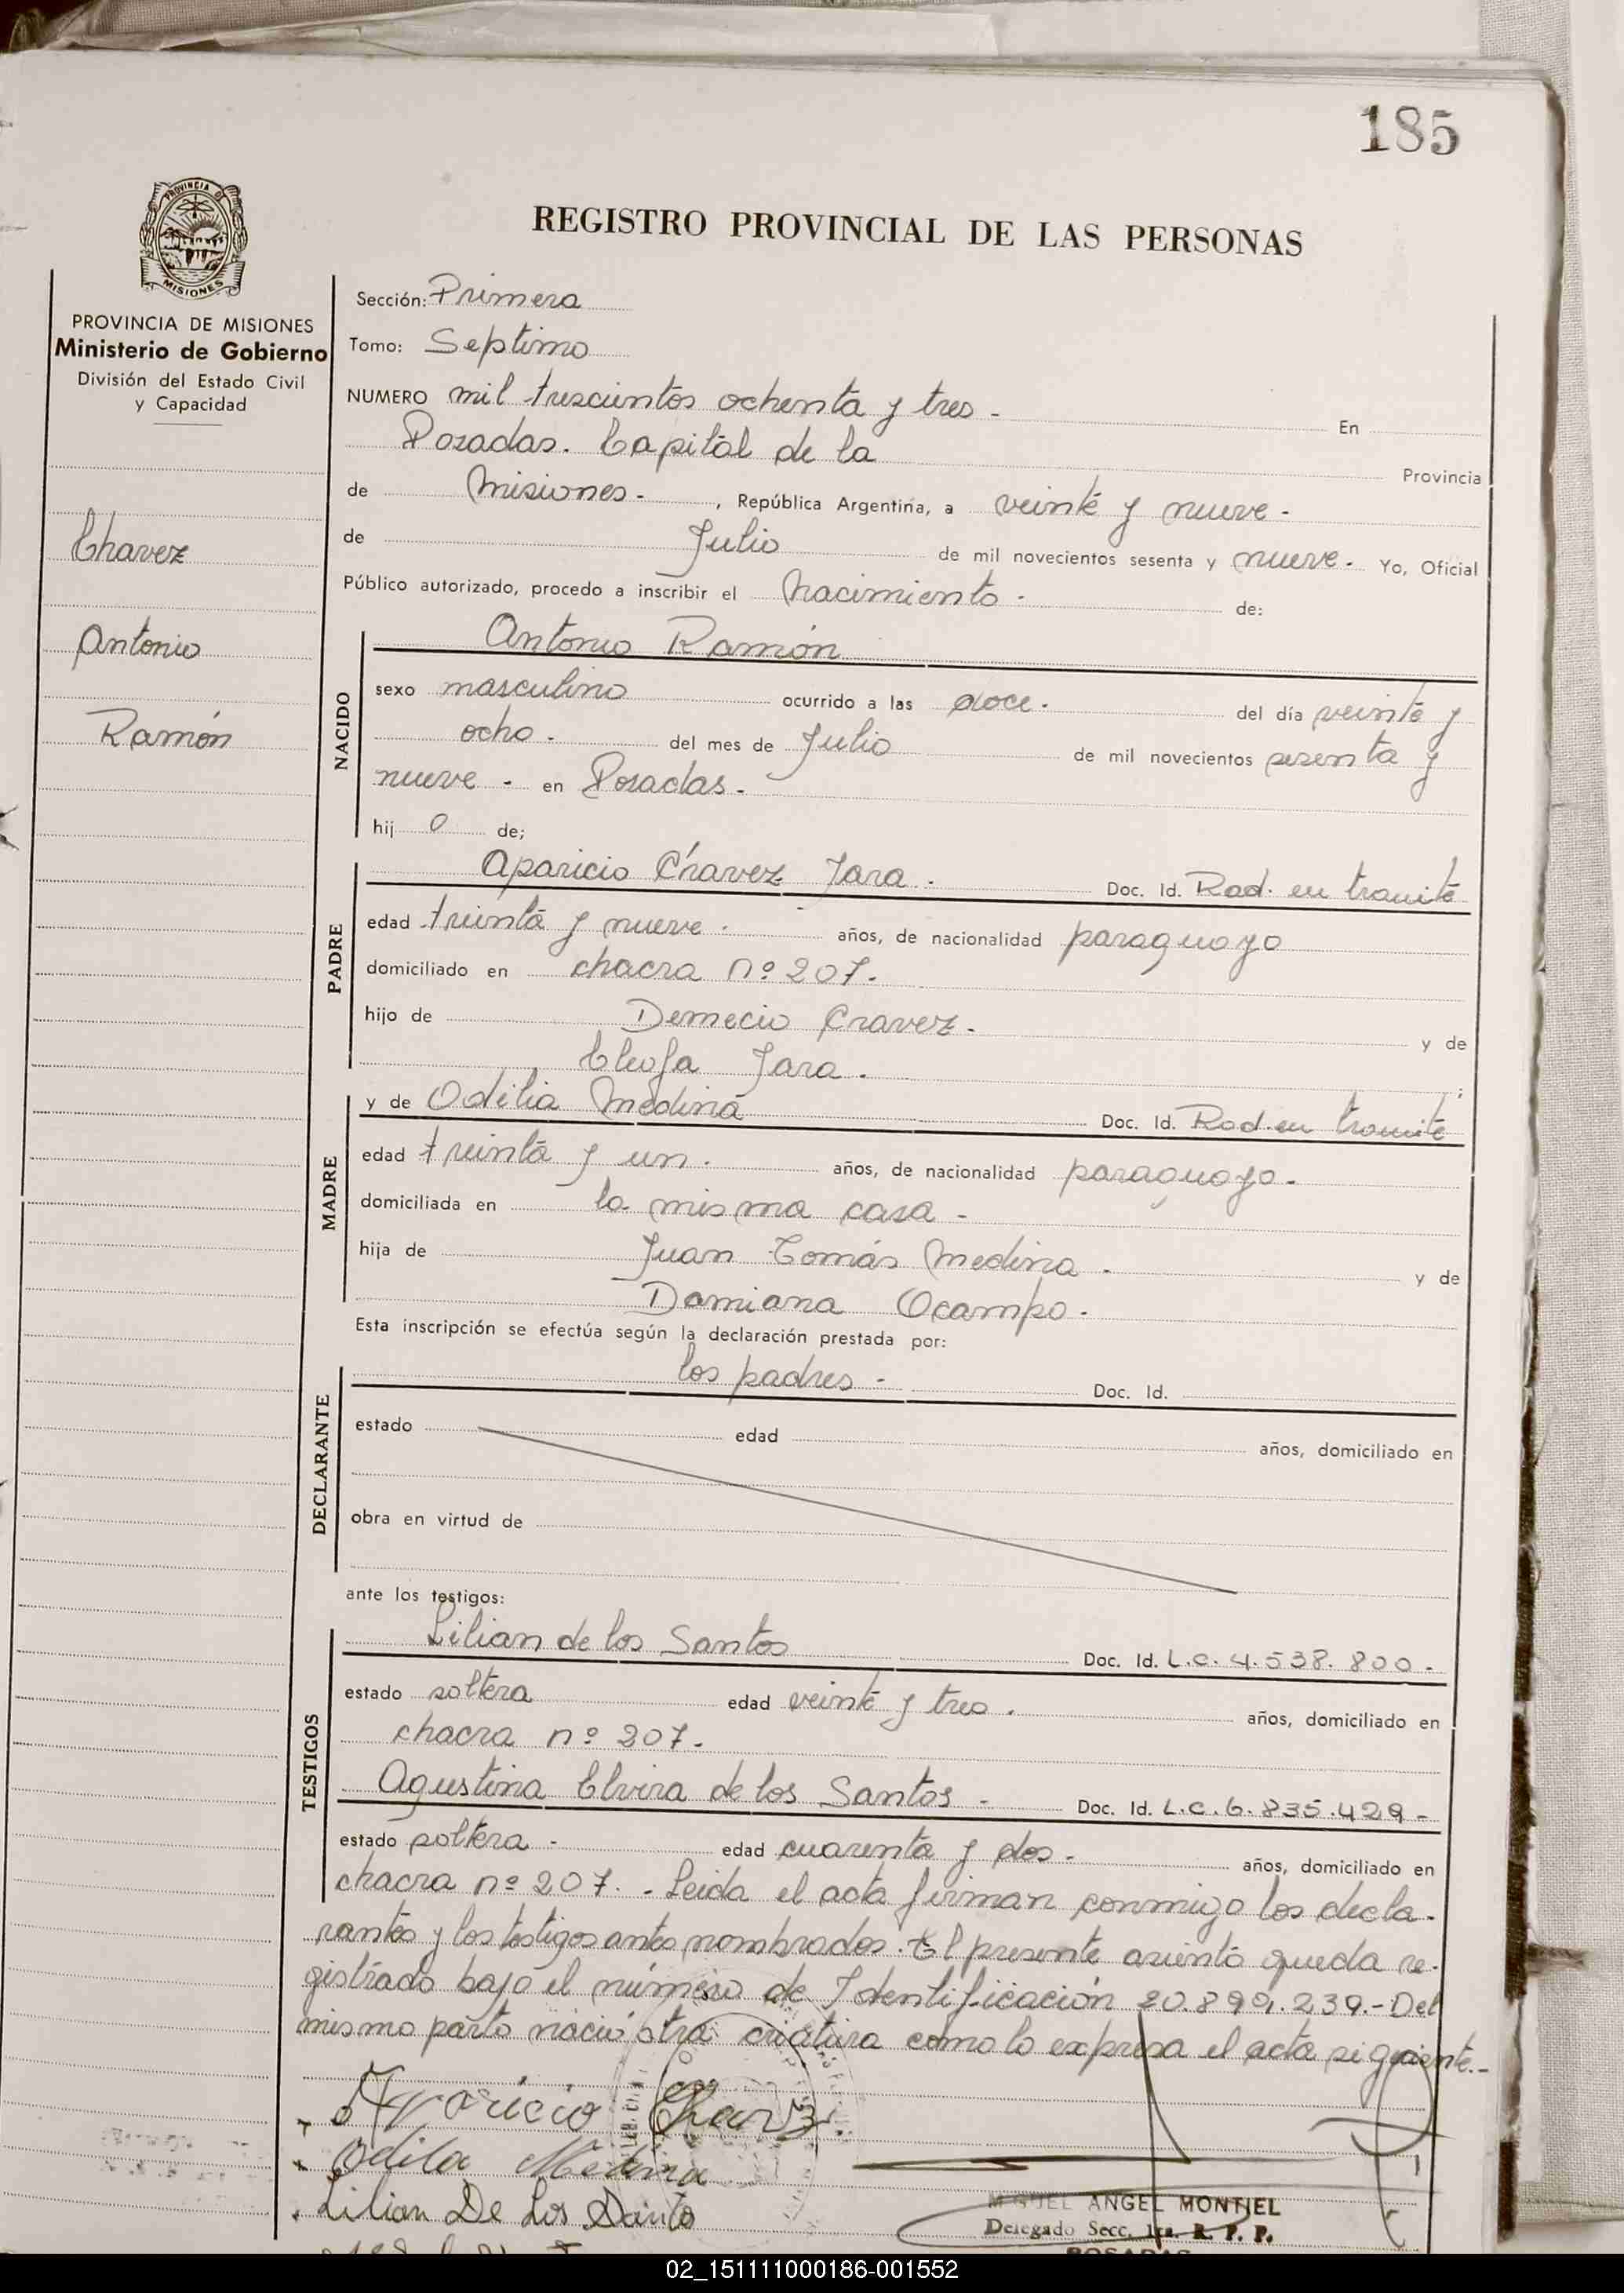 185
PROVINCIA DE MISIONES
REGISTRO PROVINCIAL DE LAS PERSONAS
PROVINCIA DE MISIONES
Ministerio de Gobierno
División del Estado Civil
y Capacidad
Chavez
Antonio
Ramón
Sección: Primera
Tomo: Septimo
NUMERO mil trescientos ochenta y tres - En
Posadas. Capital de la Provincia
de Misiones - , República Argentina, a veinte y nueve -
de Julio de mil novecientos sesenta y nueve - Yo, Oficial
Público autorizado, procedo a inscribir el nacimiento - de:
NACIDO
Antonio Ramón
sexo masculino ocurrido a las doce - del día veinte y
ocho - del mes de Julio de mil novecientos sesenta y
nueve - en Posadas -
hij o de;
PADRE
Aparicio Chavez Jara - Doc. Id. Rad. en tramite
edad treinta y nueve - años, de nacionalidad paraguayo
domiciliado en chacra nº 207.
hijo de Demecio Chavez - y de
Cleofa Jara - ;
MADRE
y de Odilia Medina Doc. Id. Rad. en tramite
edad treinta y un - años, de nacionalidad paraguayo -
domiciliada en la misma casa -
hija de Juan Tomás Medina - y de
Damiana Ocampo -
Esta inscripción se efectúa según la declaración prestada por:
DECLARANTE
los padres - Doc. Id.
estado edad años, domiciliado en
obra en virtud de
ante los testigos:
TESTIGOS
Lilian de los Santos Doc. Id. L.C. 4.538.800 -
estado soltera edad veinte y tres - años, domiciliado en
chacra nº 207 -
Agustina Elvira de los Santos - Doc. Id. L.C. 6.835.429 -
estado soltera - edad cuarenta y dos - años, domiciliado en
chacra nº 207. - Leida el acta firman conmigo los decla-
rantes y los testigos antes nombrados. El presente asiento queda re-
gistrado bajo el número de Identificación 20.899.239.- Del
mismo parto nació otra criatura como lo expresa el acta siguiente.-
Aparicio Chavez
Odila Medina
Lilian De Los Santo
MIGUEL ANGEL MONTIEL
Delegado Secc. 1ra. R. P. P.
POSADAS
02_151111000186-001552